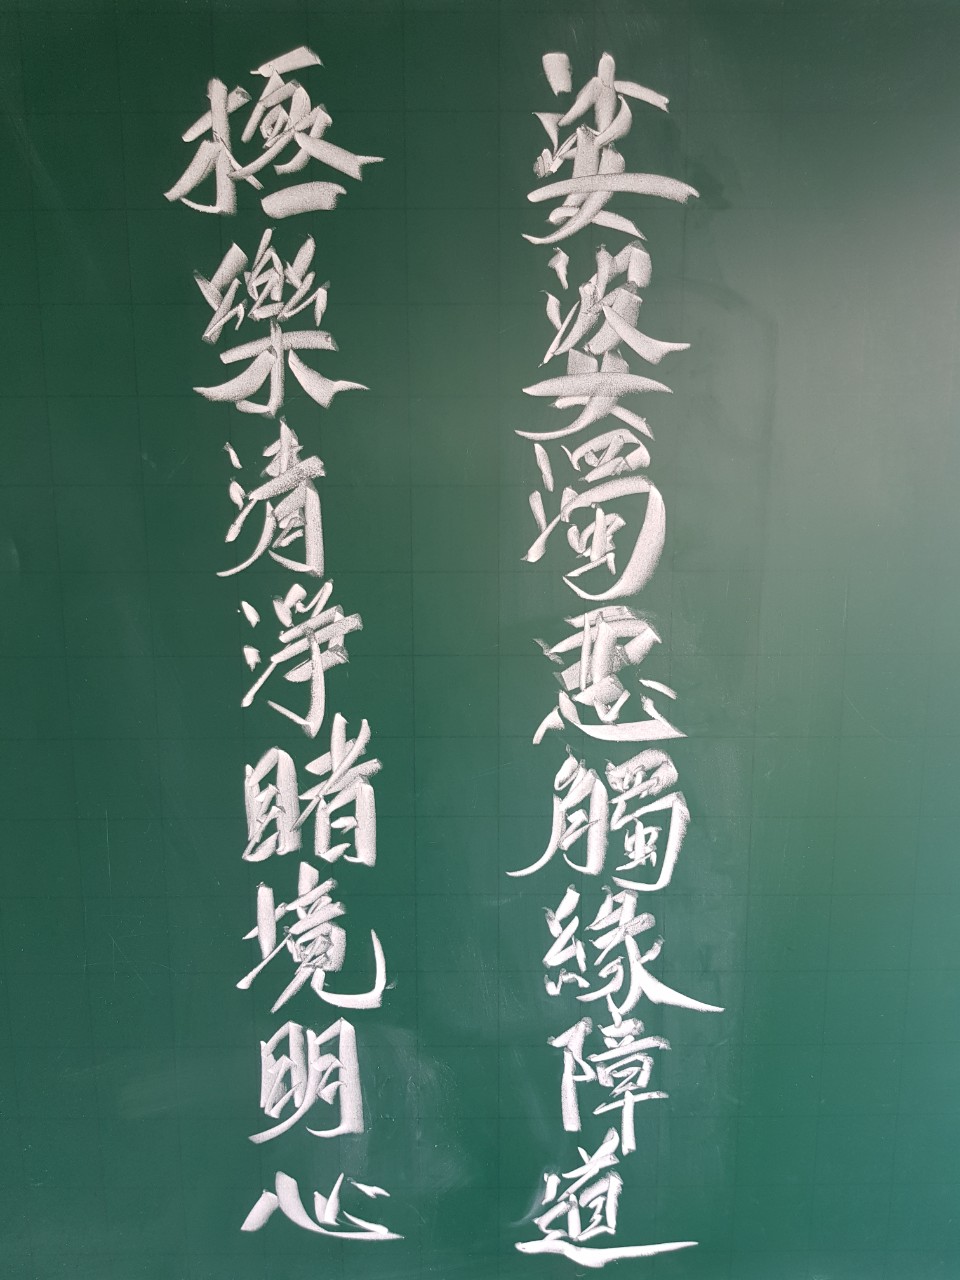 娑婆濁惡觸緣障道
極樂清淨睹境明心